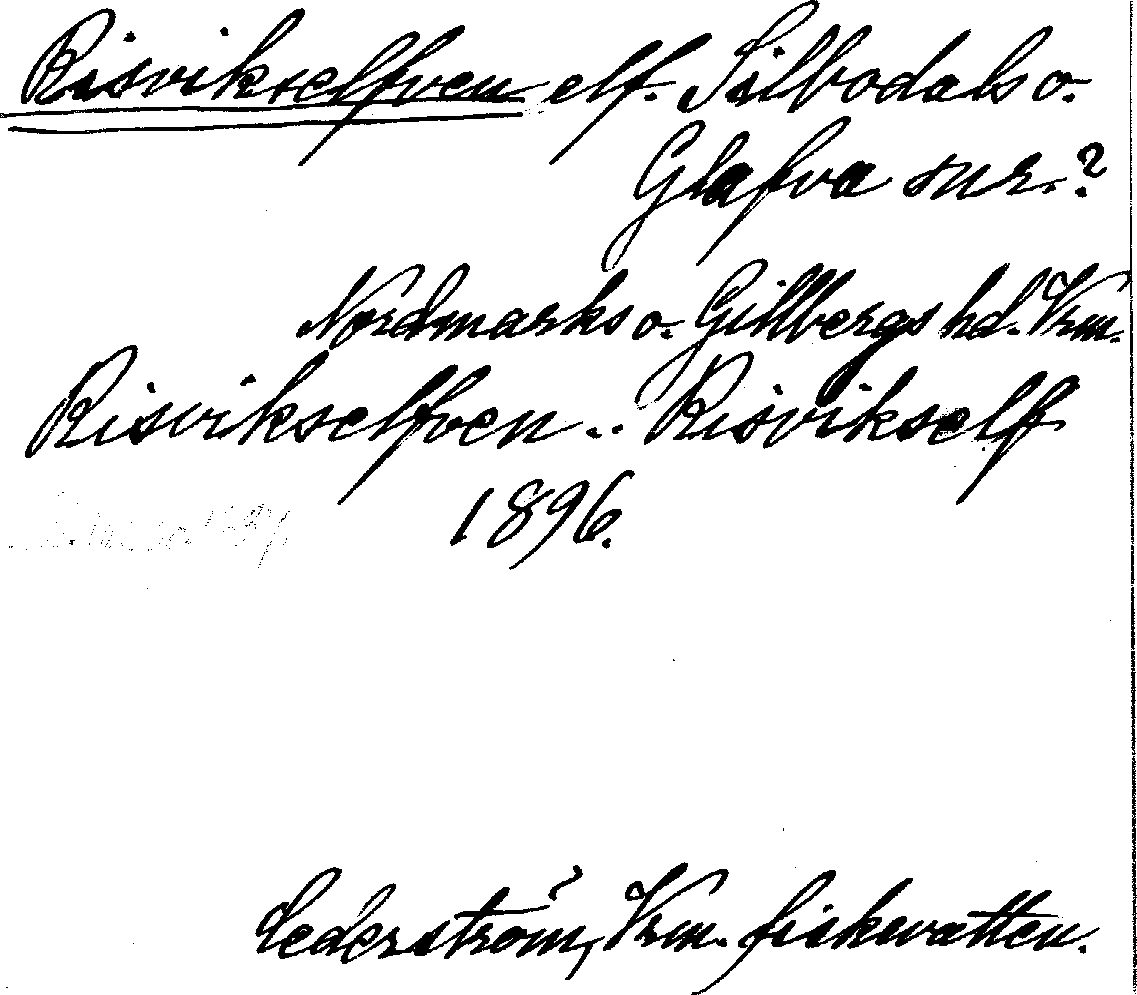 Risvikselfven elf. Silbodals o.
Glafva snr.?
Nordmarks o. Gillbergs hd. Vrm.
Risvikselfven .. Risvikself
1896.
Cederström, Vrm. fiskevatten.